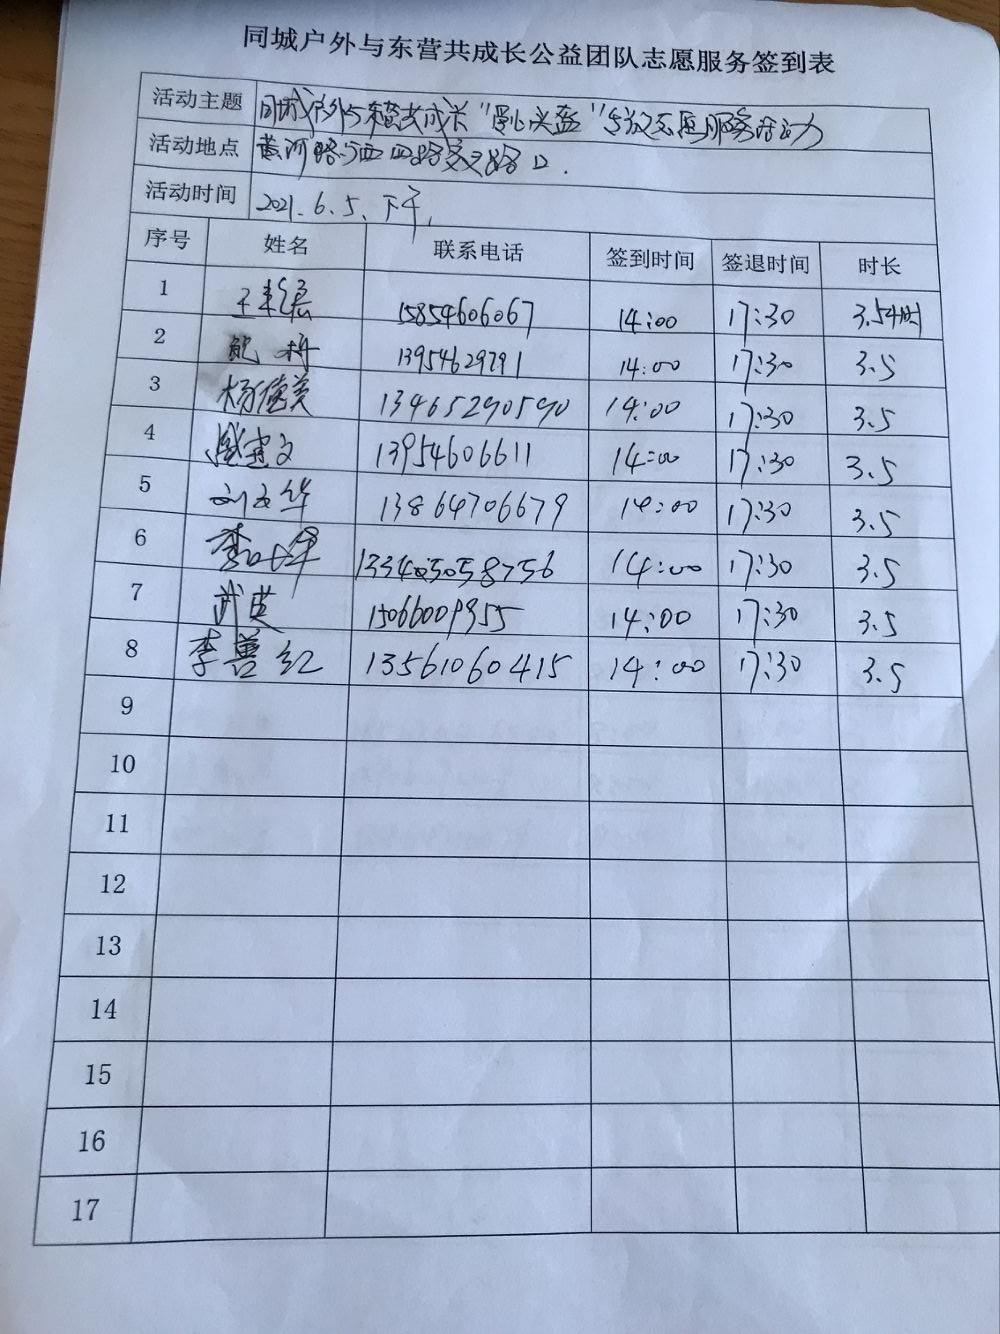 同城户外与东营共成长公益团队志愿服务签到表
活动主题 同城户外与东营共成长"爱心头盔"发放志愿服务活动
活动地点 黄河路与西四路交叉路口.
活动时间 2021.6.5、下午,
序号 姓名 联系电话 签到时间 签退时间 时长
1 15854606067 14:00 17:30 3.5小时
2 13954629291 14:00 17:30 3.5
3 杨德美 13465290590 14:00 17:30 3.5
4 13954606611 14:00 17:30 3.5
5 13864706679 14:00 17:30 3.5
6 14:00 17:30 3.5
7 武英 15066009955 14:00 17:30 3.5
8 李兽红 13561060415 14:00 17:30 3.5
9
10
11
12
13
14
15
16
17